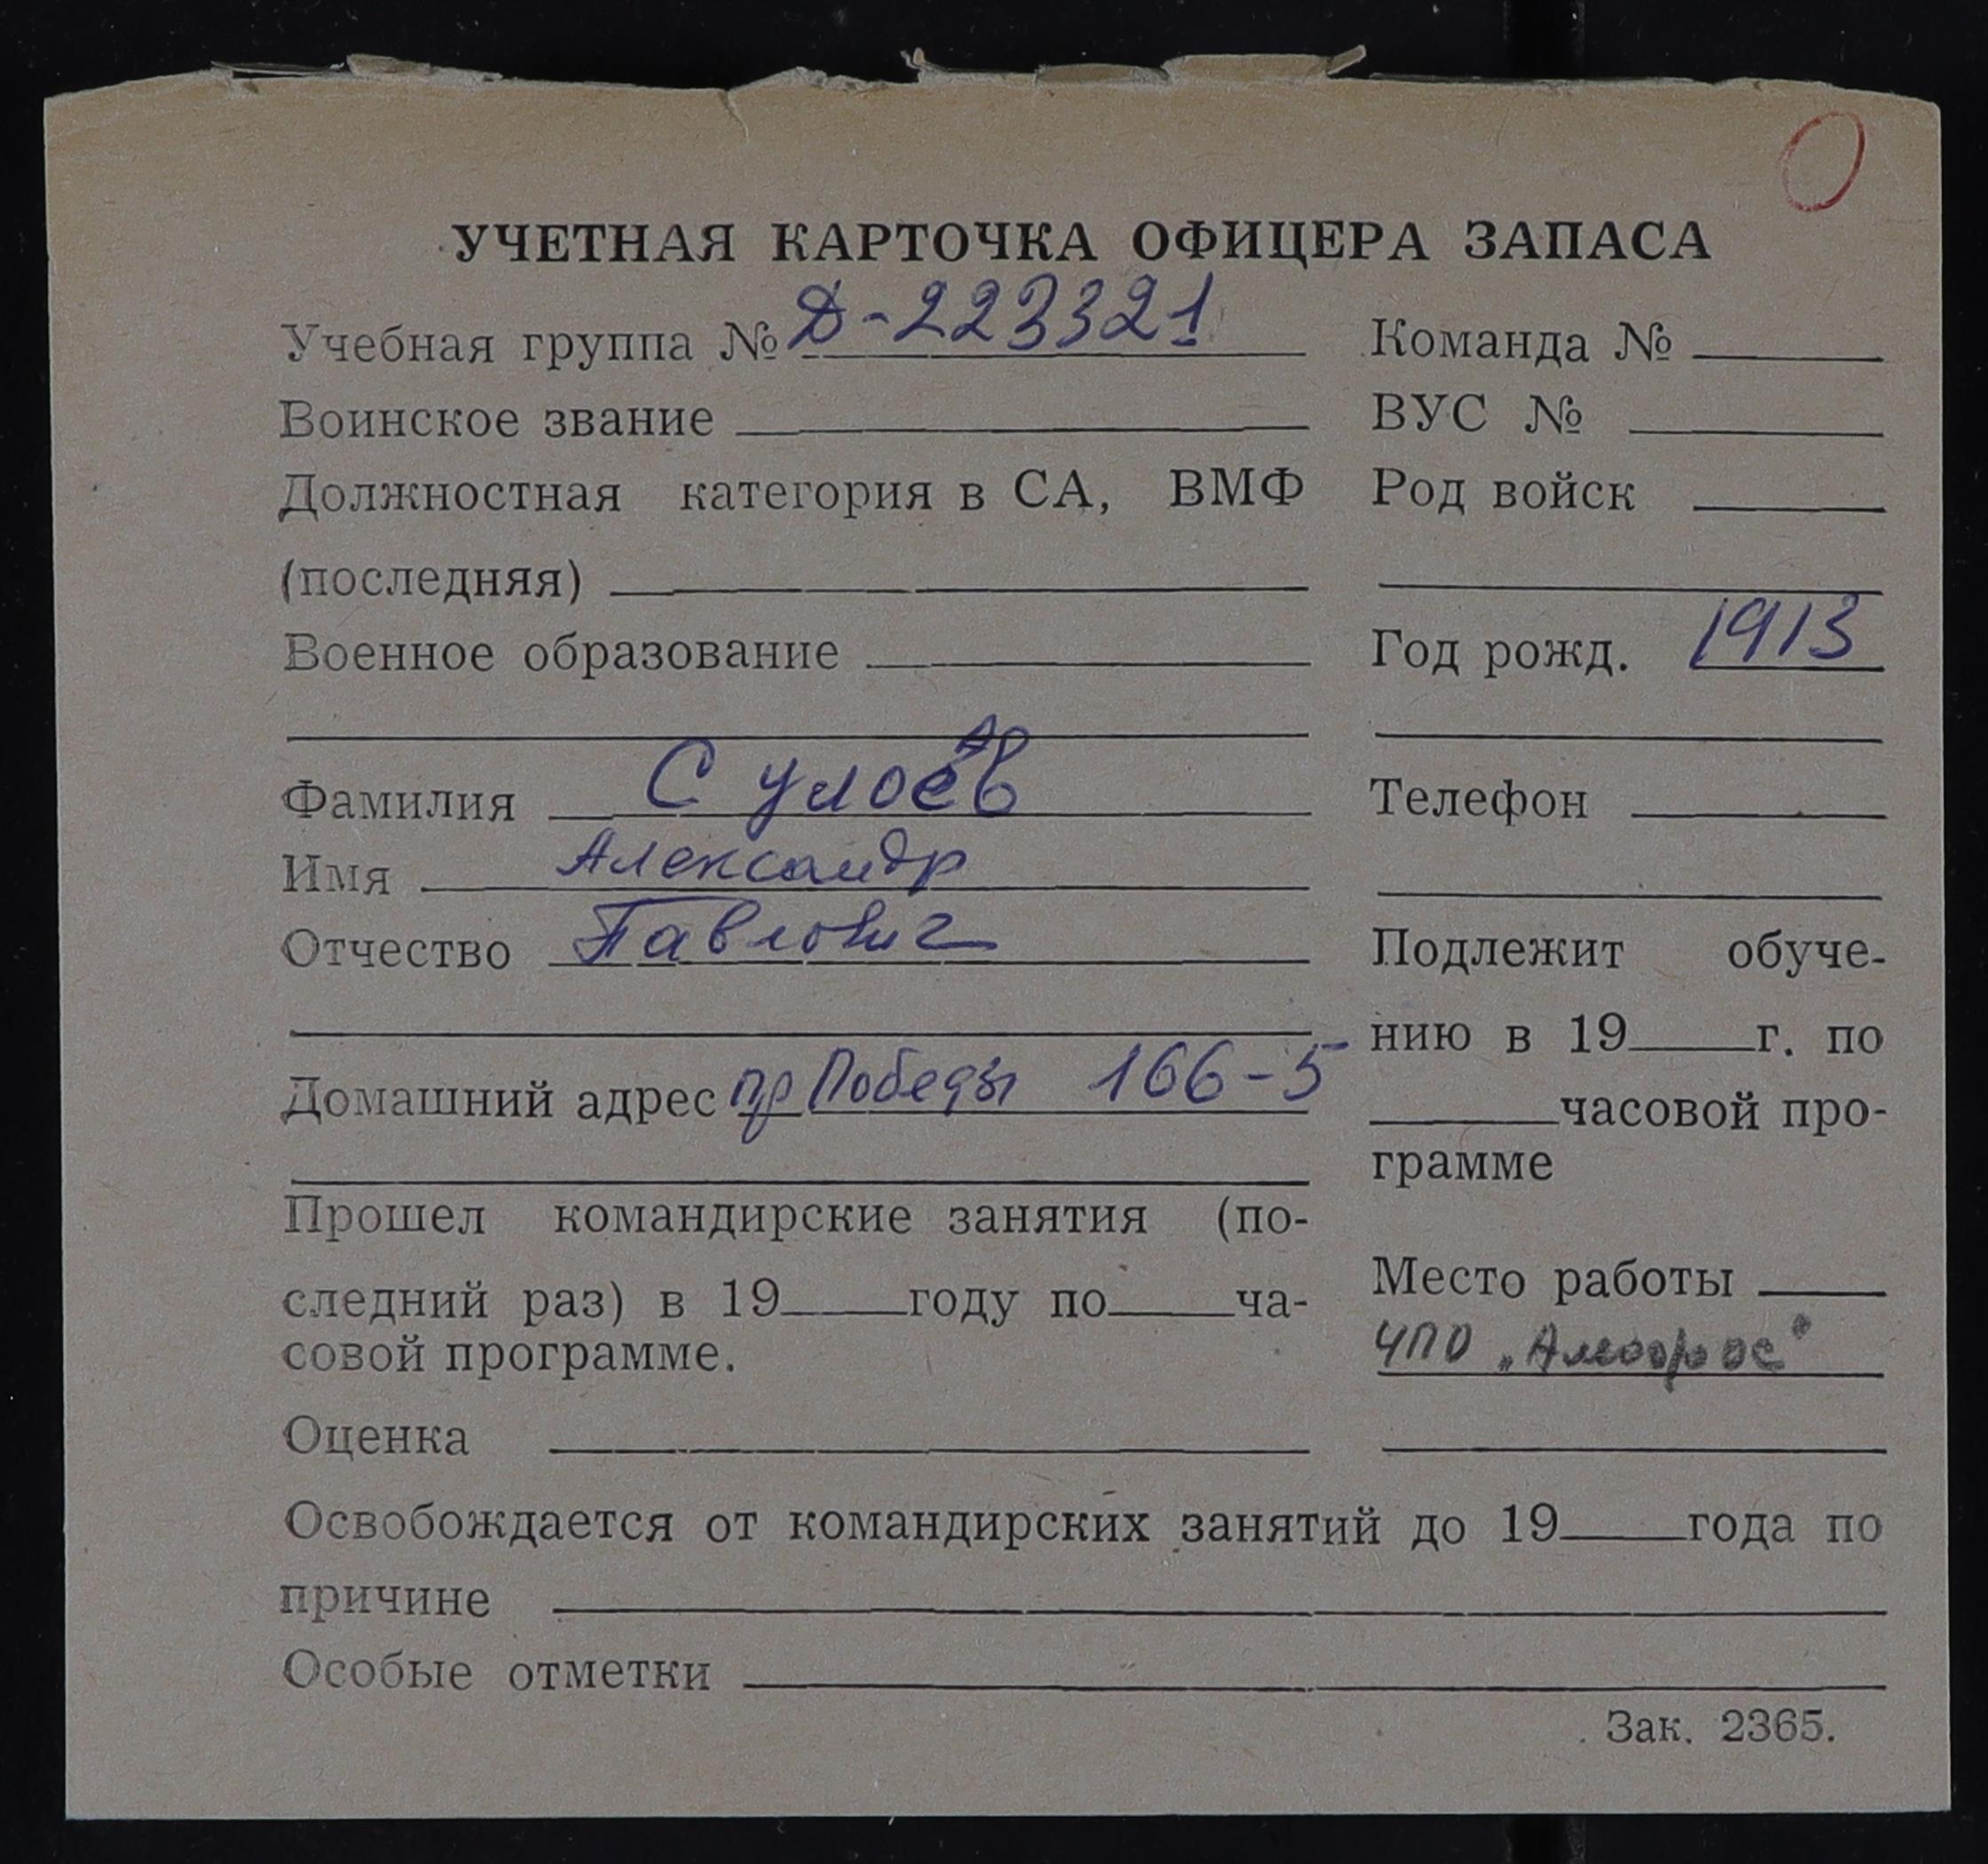 УЧЕТНАЯ КАРТОЧКА ОФИЦЕРА ЗАПАСА
Учебная группа № Д-223321
Воинское звание
Должностная категория в СА, ВМФ
(последняя)
Военное образование
Фамилия
Имя Александр
Отчество Павлович
Домашний адрес пр Победы 166-5
Прошел командирские занятия (по-
следний раз) в 19 году по ча-
совой программе.
Оценка
Команда №
ВУС №
Род войск
Год рожд. 1913
Телефон
Подлежит обуче-
нию в 19 г. по
часовой про-
грамме
Место работы
ЧПО
Освобождается от командирских занятий до 19 года по
причине
Особые отметки
Зак. 2365.